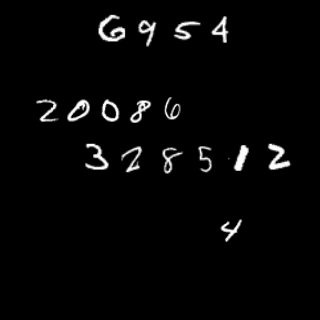 6954
20086
328512
4